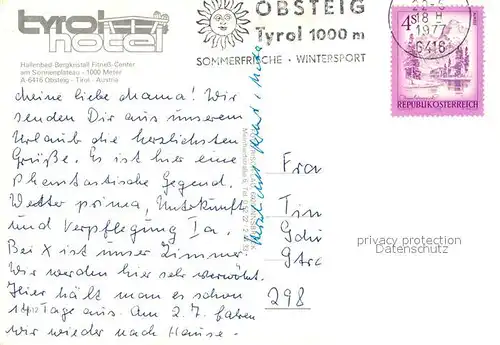 tyrol
hotel
Hallenbad-Bergkristall Fitneß-Center
am Sonnenplateau - 1000 Meter
A-6416 Obsteig - Tirol - Austria
OBSTEIG
Tyrol 1000 m
SOMMERFRISCHE · WINTERSPORT
18
1977
6416
4S
REPUBLIK ÖSTERREICH
Meine liebe Mama! Wir
senden Dir aus unserem
Urlaub die herzlichsten
Grüße. Es ist hier eine
phantastische Gegend.
Wetter prima, Unterkunft
und Verpflegung Ia.
Bei X ist unser Zimmer
Wir werden hier sehr verwöhnt.
Hier hält man es schon
14 Tage aus. Am 2.7. fahren
wir wieder nach Hause.
Herzlichst
Fra
298
privacy protection
Datenschutz